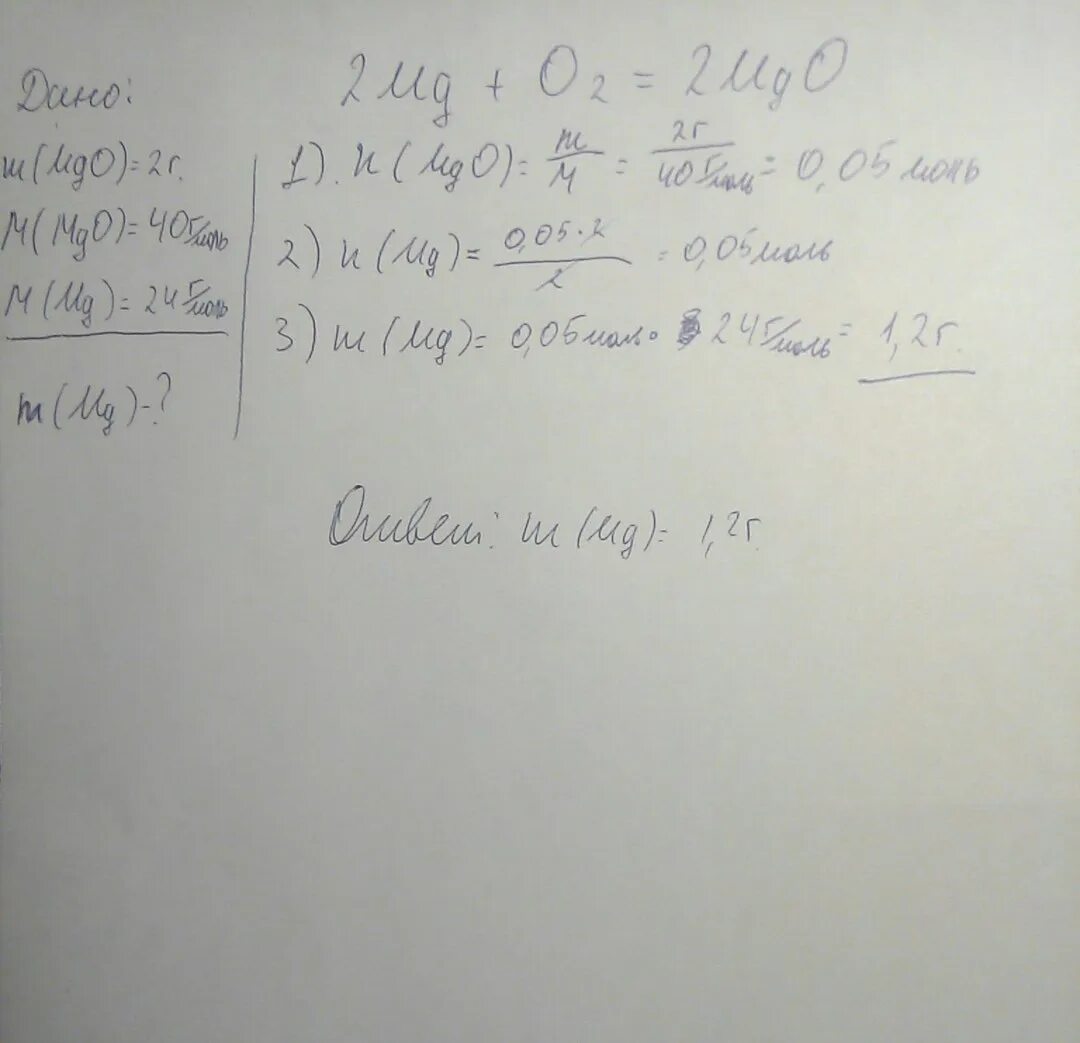 Дано:
m(MgO)=2г.
M(MgO)=40г/моль
M(Mg)=24г/моль
m(Mg)-?
2Mg + O₂ = 2MgO
1). n(MgO)= m/M = 2г/40г/моль = 0,05 моль
2) n(Mg)= 0,05·2/2 = 0,05моль
3) m(Mg)= 0,05моль· 24г/моль= 1,2г.
Ответ: m(Mg)= 1,2г.